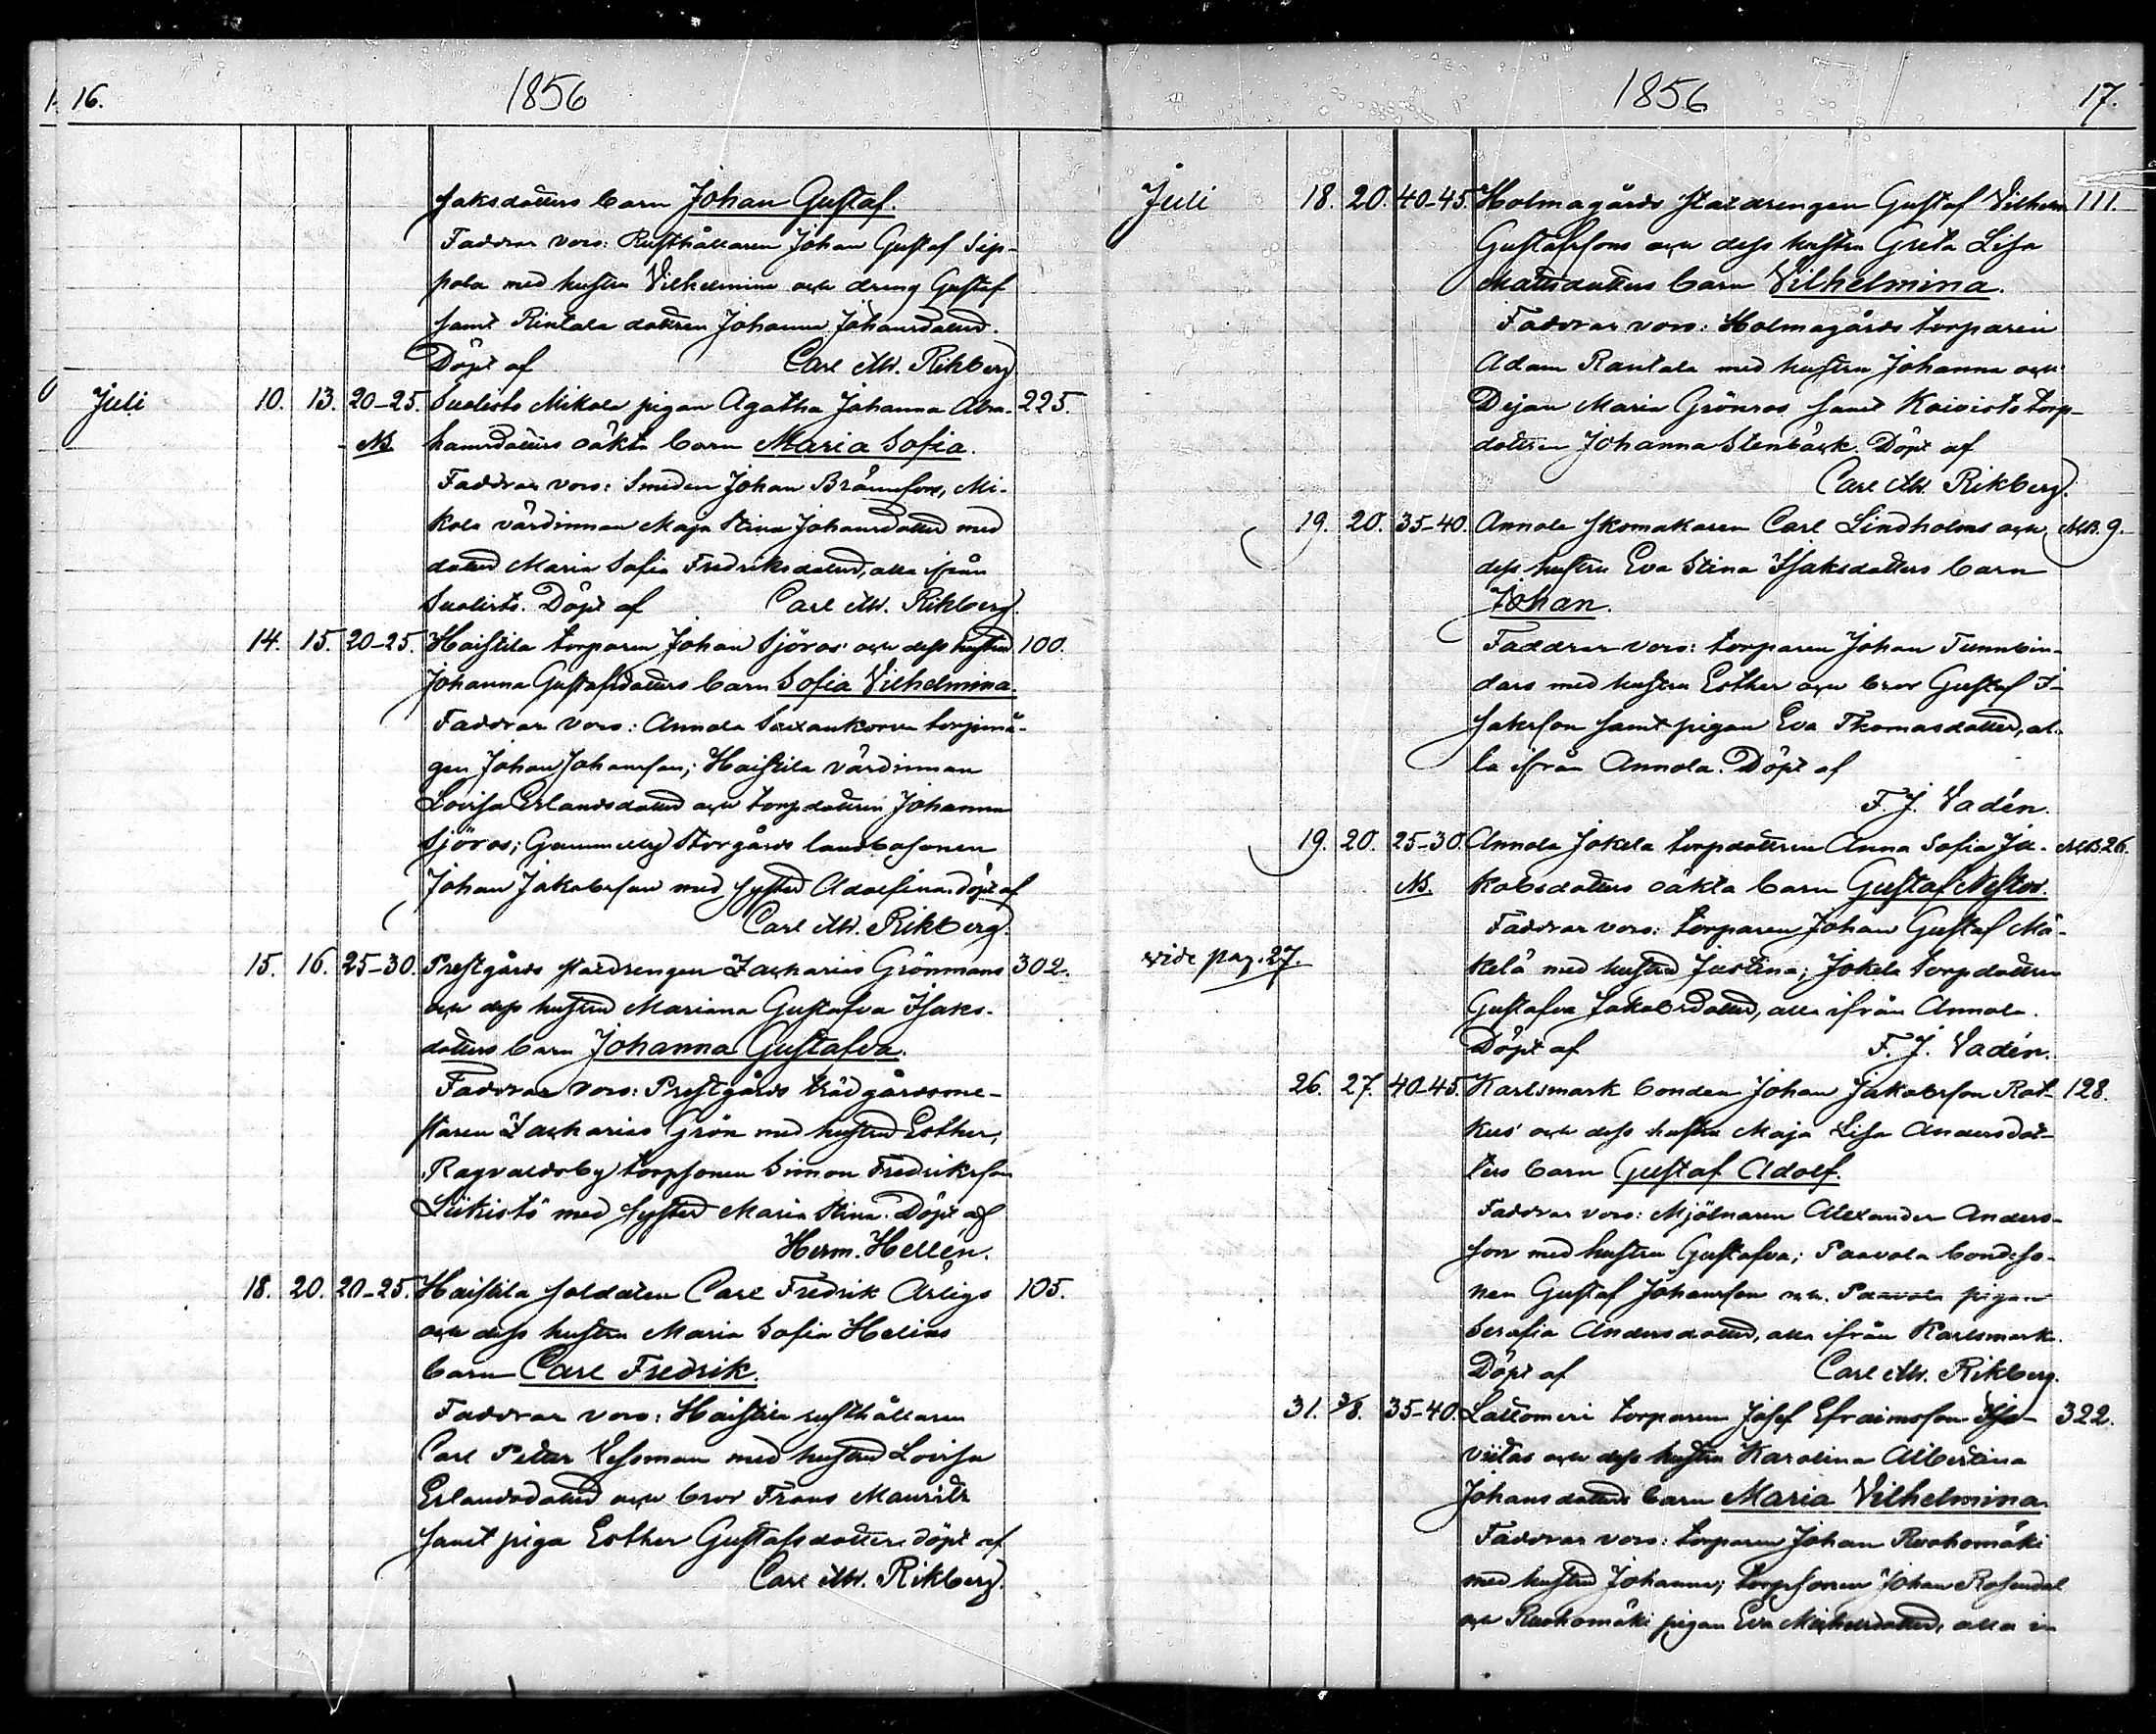 16.
1856
Isaksdotters barn Johan Gustaf.
Faddrar voro: Rusthållaren Johan Gustaf Sip-
pola med hustru Vilhelmina och dreng Gustaf
samt Rintala dottren Johanna Johansdotter.
Döpt af Carl M. Rikberg
Juli 10. 13. 20-25. Suolisto Mikola pigan Agatha Johanna Abra- 225.
NB. hamsdotters oäkta barn Maria Sofia.
Faddrar voro: Smeden Johan Brännfors, Mi-
kola värdinnan Maja Stina Johansdotter med
dotter Maria Sofia Fredriksdotter, alla ifrån
Suolisto. Döpt af Carl M. Rikberg.
14. 15. 20-25. Haistila torparen Johan Sjöros' och dess hustru 100.
Johanna Gustafsdotters barn Sofia Vilhelmina.
Faddrar voro: Annola Saxankorva torpmå-
gen Johan Johansson; Haistila värdinnan
Lovisa Erlandsdotter och torpdottren Johanna
Sjöros; Gammelby Storgårds landbosonen
Johan Jakobsson med syster Adolfina. Döpt af
Carl M. Rikberg.
15. 16. 25-30. Prestgårds statdrengen Zacharias Grönmans 302.
och dess hustru Mariana Gustafva Isaks-
dotters barn Johanna Gustafva.
Faddrar voro: Prestgårds trädgårdsme-
staren Zacharias Grön med hustru Esther,
Ragvaldsby torpsonen Simon Fredriksson
Liikistö med syster Maria Stina. Döpt af
Herm. Hellén.
18. 20. 20-25. Haistila soldaten Carl Fredrik Ärligs 105.
och dess hustru Maria Sofia Helins
barn Carl Fredrik.
Faddrar voro: Haistila rusthållaren
Carl Petter Vessman med hustru Lovisa
Erlandsdotter och bror Frans Mauritz
samt piga Esther Gustafsdotter. Döpt af
Carl M. Rikberg.
1856
17.
Juli 18. 20. 40-45. Holmagårds statdrengen Gustaf Vilhelm 111.
Gustafssons och dess hustru Greta Lisa
Mattsdotters barn Vilhelmina.
Faddrar voro: Holmagårds torparen
Adam Rantala med hustru Johanna och
Dejan Maria Grönros samt Koivisto torp-
dottren Johanna Stenbäck. Döpt af
Carl M. Rikberg.
19. 20. 35-40. Annola skomakaren Carl Lindholms och MB. 9.
dess hustru Eva Stina Isaksdotters barn
Johan.
Faddrar voro: torparen Johan Tunnbin-
dars med hustru Esther och bror Gustaf I-
saksson samt pigan Eva Thomasdotter, al-
la ifrån Annola. Döpt af
F. J. Vadén.
19. 20. 25-30. Annola Jokela torpdottren Anna Sofia Ja- MB. 26.
NB. kobsdotters oäkta barn Gustaf Nestor.
Faddrar voro: torparen Johan Gustaf Mä-
vide pag. 27. kelä med hustru Justina; Jokela torpdottren
Gustafva Jakobsdotter, alla ifrån Annola.
Döpt af F. J. Vadén.
26. 27. 40-45. Karlsmark bonden Johan Jakobsson Rot- 128.
kus' och dess hustru Maja Lisa Andersdot-
ters barn Gustaf Adolf.
Faddrar voro: Mjölnaren Alexander Anders-
son med hustru Gustafva; Paavola bondeso-
nen Gustaf Johansson och Paavola pigan
Serafia Andersdotter, alla ifrån Karlsmark.
Döpt af Carl M. Rikberg.
31. 3/8. 35-40. Lattomeri torparen Josef Efraimsson Iso- 322.
viitas och dess hustru Karolina Albertina
Johansdotters barn Maria Vilhelmina.
Faddrar voro: torparen Johan Ruohomäki
med hustru Johanna; torpsonen Johan Rosendal
och Ruohomäki pigan Eva Michelsdotter, alla i-